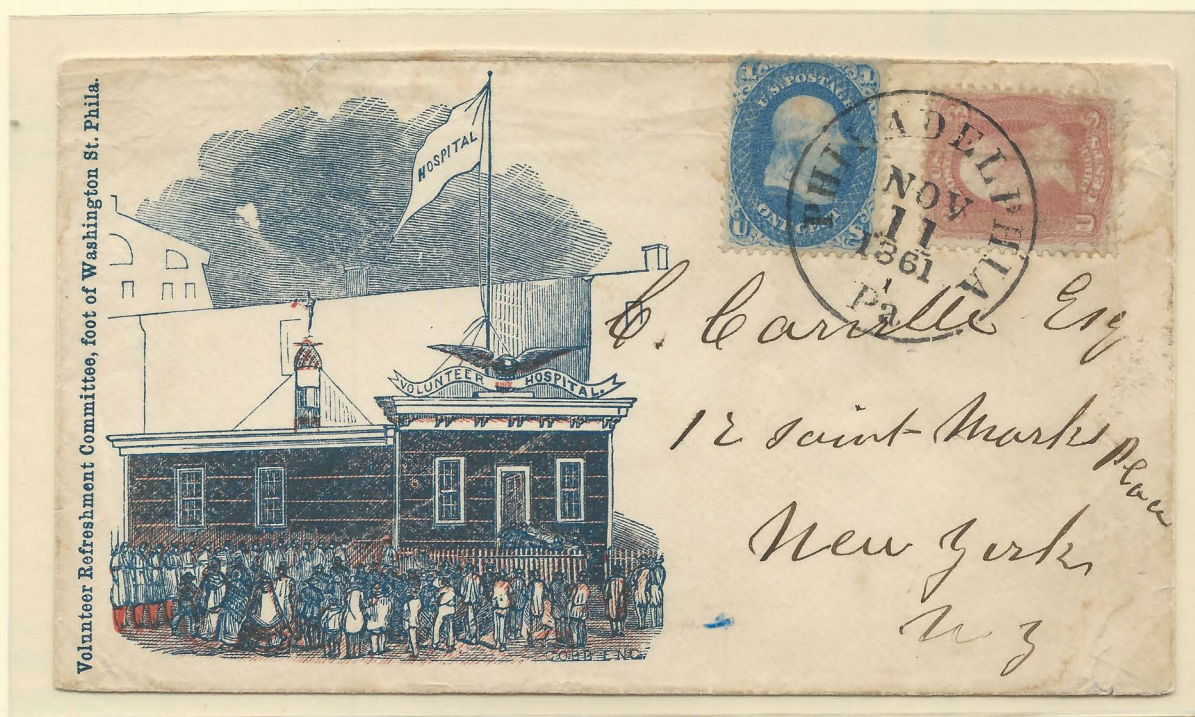 Volunteer Refreshment Committee, foot of Washington St. Phila.
HOSPITAL
VOLUNTEER HOSPITAL.
COBB ENG.
1 1
U.S. POSTAGE
U ONE CENT S
U CENTS
PHILADELPHIA
NOV
11
1861
Pa
C. Carville Esq
12 Saint Marks Place
New York
N. Y